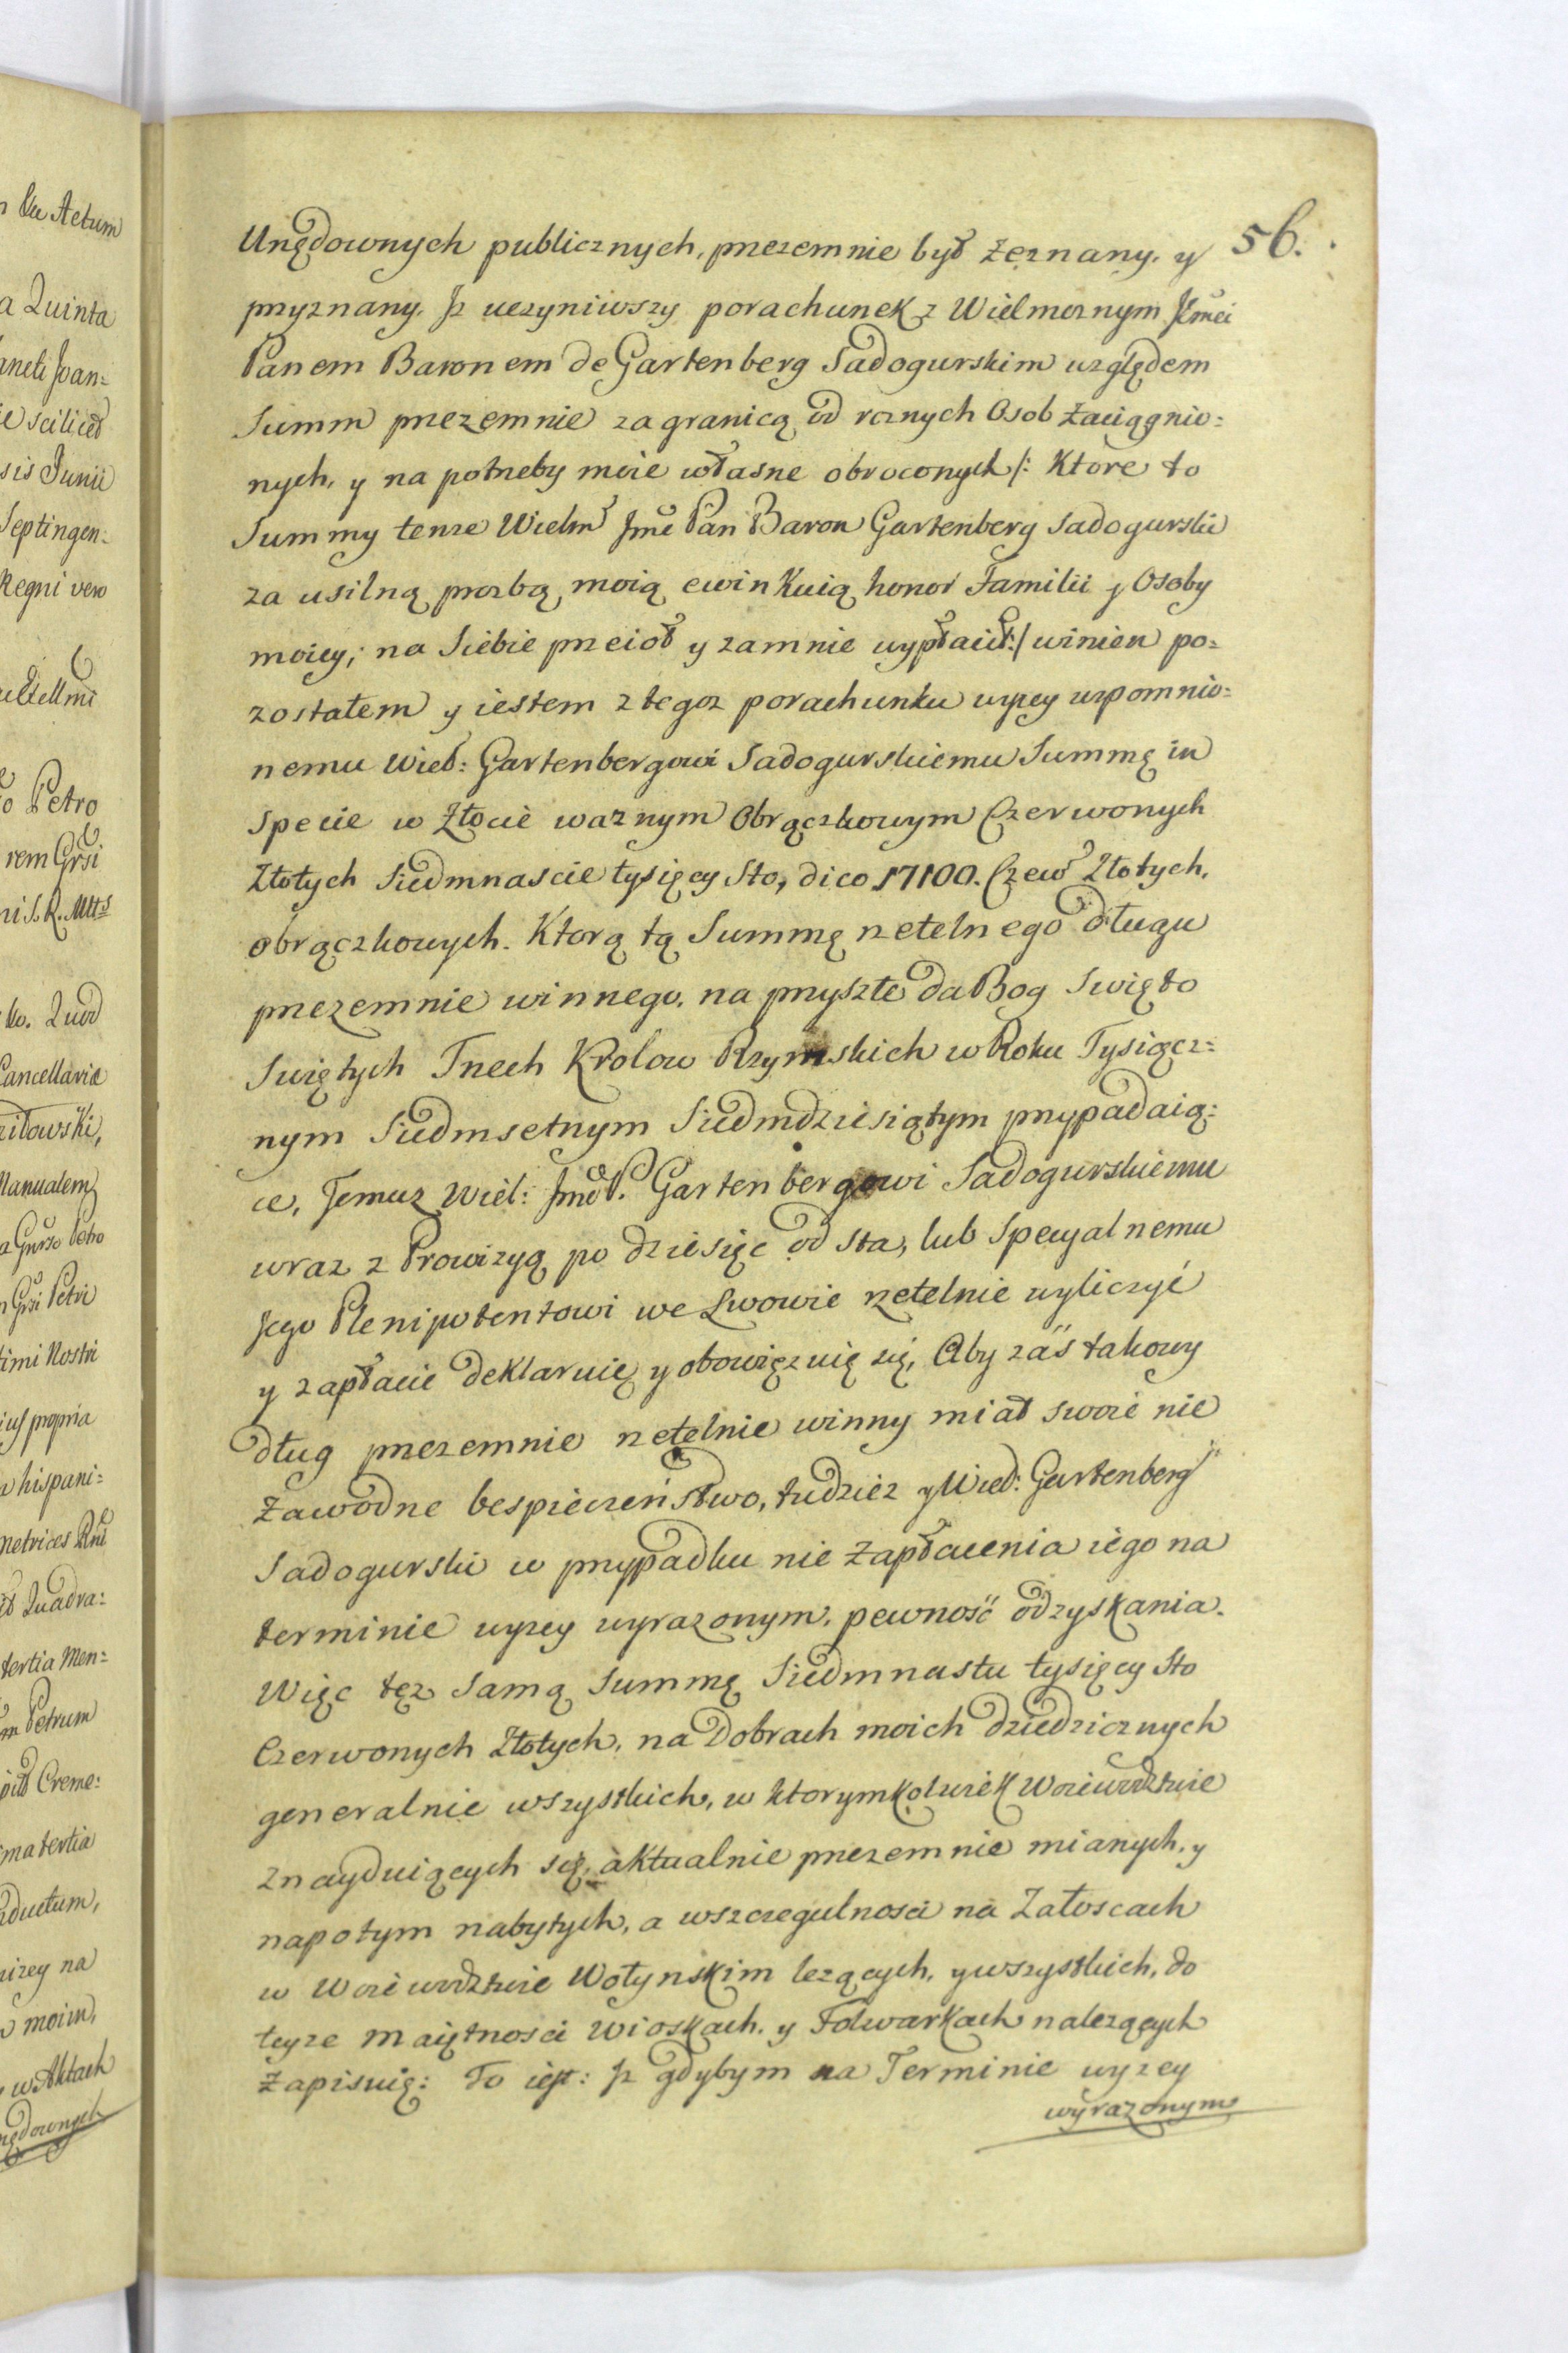 56.
Urzędownych publicznych, przezemnie był zeznany, y
przyznany. Jz uczyniwszy porachunek z Wielmoznym Jmći
Panem Baronem de Gartenberg Sadogurskim względem
Summ przezemnie za granicą od roznych Osob zaciągnio=
nych, y na potrzeby moie własne obroconych /: Ktore to
Summy tenze Wielm Jmć Pan Baron Gartenberg Sadogurski
za usilną prozbą moią ewinkuią honor Familii y Osoby
moiey; na Siebie prz eioł y zamnie wypłacił :/ winien po=
zostałem y iestem z tegoz porachunku wyzey wspomnio=
nemu Wiel: Gartenbergowi Sadogurskiemu Summę in
Specie w Złocie waznym Obrączkowym Czerwonych
Złotych Siedmnascie tysięcy Sto, dico 17100. Czew Złotych,
obrączkowych. Ktorą tą Summę rzetelnego długu
przezemnie winnego, na przyszłe da Bog Swięto
Swiętych Trzech Krolow Rzymskich w Roku Tysiącz=
nym Siedmsetnym Siedmdziesiątym przypadaią=
ce, Temuz Wiel: Jmć P. Gartenbergowi Sadogurskiemu
wraz z Prowizyą po dziesięc od sta, lub Specyalnemu
Jego Plenipotentowi we Lwowie rzetelnie wyliczyć
y zapłacic deklaruię y obowięzuię się, Aby zaś takowy
dług przezemnie rzetelnie winny miał swoie nie
zawodne bespieczeństwo, tudziez y Wiel: Gartenberg
Sadogurski w przypadku nie zapłacenia iego na
terminie wyzey wyrazonym, pewność odzyskania.
Więc tęz samą Summę Siedmnastu tysięcy Sto
Czerwonych Złotych, na Dobrach moich dziedzicznych
generalnie wszystkich, w ktorymkolwiek Woiewodztwie
znayduiących się, aktualnie przezemnie mianych, y
napotym nabytych, a wszczegulnosci na Załoscach
w Woiewodztwie Wołynskim lezących, y wszystkich, do
teyze maiętnosci Wioskach, y Folwarkach nalezących
zapisuię: To iest: Jz gdybym na Terminie wyzey
wyrazonym